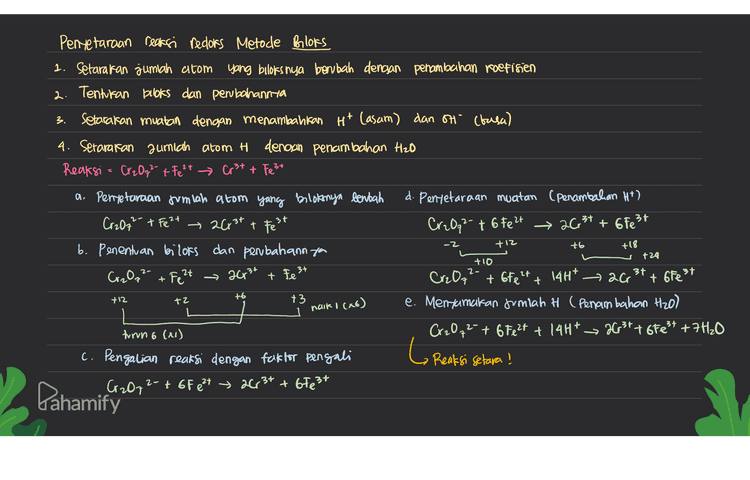 Penyetaraan reaksi redoks Metode Biloks
1. Setarakan jumlah atom yang biloksnya berubah dengan penambahan koefisien
2. Tentukan biloks dan perubahannya
3. Setarakan muatan dengan menambahkan H⁺ (asam) dan OH⁻ (basa)
4. Setarakan jumlah atom H dengan penambahan H₂O
Reaksi = Cr₂O₇²⁻ + Fe²⁺ → Cr³⁺ + Fe³⁺
a. Penyetaraan jumlah atom yang biloksnya berubah
Cr₂O₇²⁻ + Fe²⁺ → 2Cr³⁺ + Fe³⁺
b. Penentuan biloks dan perubahannya
Cr₂O₇²⁻ + Fe²⁺ → 2Cr³⁺ + Fe³⁺
+12 +2 +6 +3
naik 1 (x6)
turun 6 (x1)
c. Pengalian reaksi dengan faktor pengali
Cr₂O₇²⁻ + 6Fe²⁺ → 2Cr³⁺ + 6Fe³⁺
d. Penyetaraan muatan (penambahan H⁺)
Cr₂O₇²⁻ + 6Fe²⁺ → 2Cr³⁺ + 6Fe³⁺
-2 +12 +6 +18
+10 +24
Cr₂O₇²⁻ + 6Fe²⁺ + 14H⁺ → 2Cr³⁺ + 6Fe³⁺
e. Menyamakan jumlah H (Penambahan H₂O)
Cr₂O₇²⁻ + 6Fe²⁺ + 14H⁺ → 2Cr³⁺ + 6Fe³⁺ + 7H₂O
↳ Reaksi setara !
Pahamify